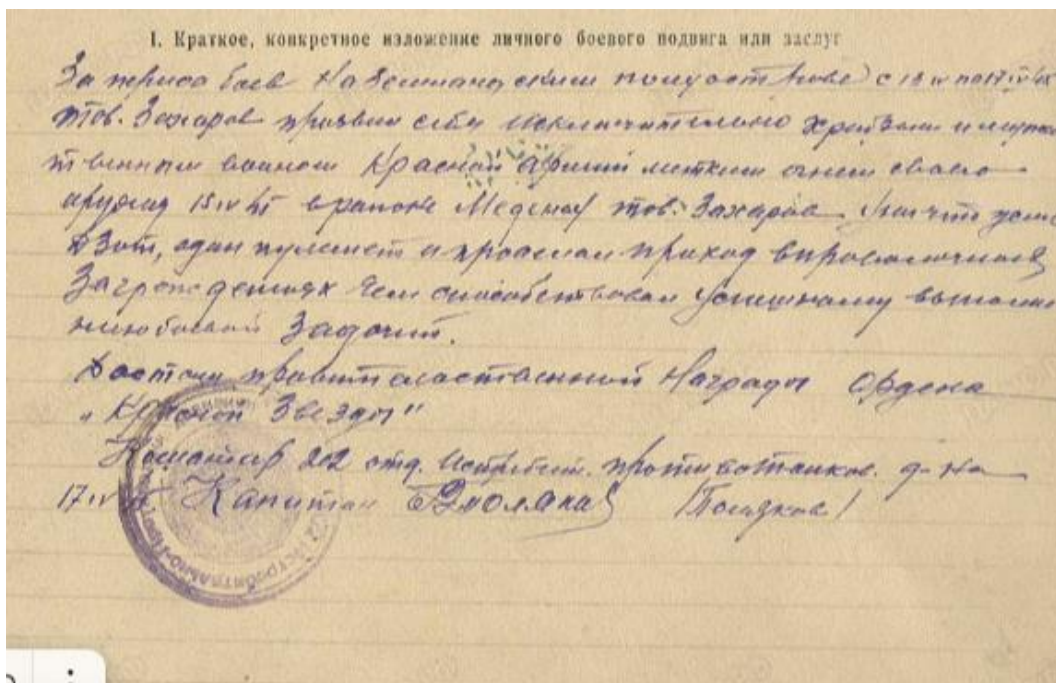 I. Краткое, конкретное изложение личного боевого подвига или заслуг
За период боев На Земландском полуострове с 13 IV по 17 IV
тов. Захаров проявил себя Исключительно храбрым и
воином Красной армии метким огнем своего
орудия 15 IV в районе Меденау тов. Захаров Уничтожил
дзот, один пулемет и проделал проход в проволочных
Заграждениях чем способствовал успешному
боевой Задачи.
Достоин правительственной Награды Ордена
"Красной Звезды"
Командир 202 отд. Истребит. противотанков. д-на
17 IV Капитан